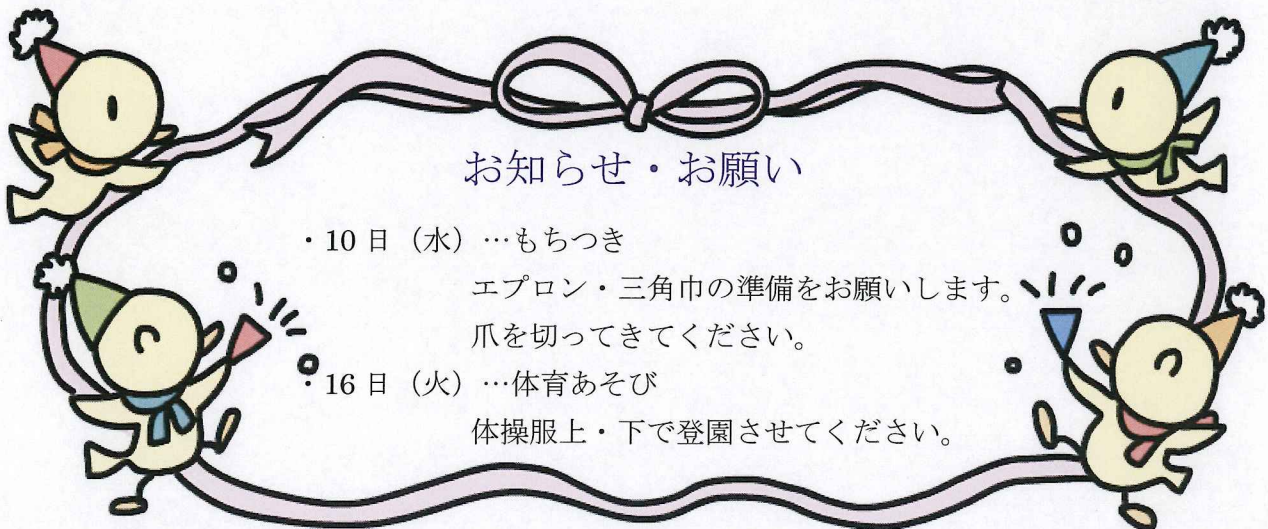 お知らせ・お願い
・10日（水）…もちつき
エプロン・三角巾の準備をお願いします。
爪を切ってきてください。
・16日（火）…体育あそび
体操服上・下で登園させてください。